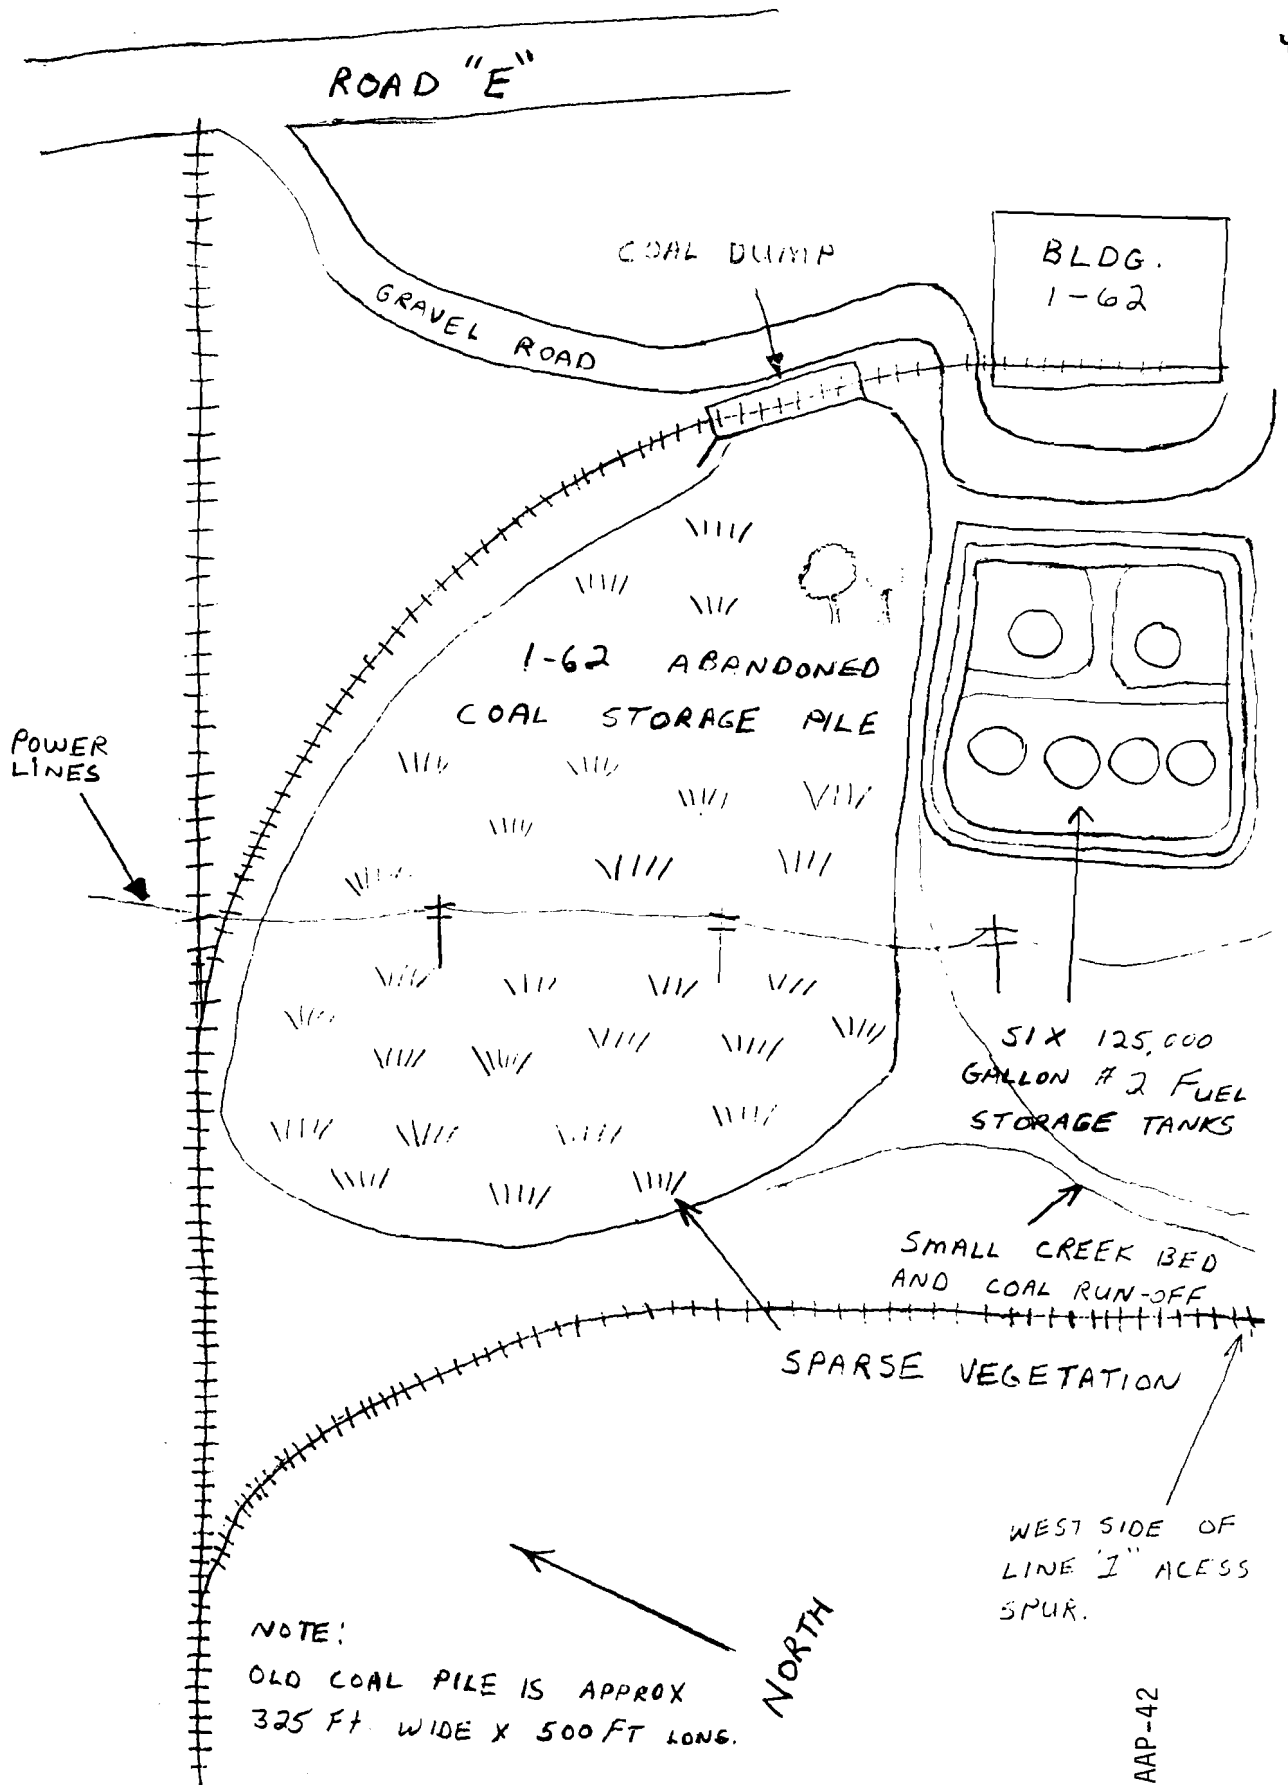 ROAD "E"
COAL DUMP
BLDG.
1-62
GRAVEL ROAD
1-62 ABANDONED
COAL STORAGE PILE
POWER
LINES
SIX 125,000
GALLON #2 FUEL
STORAGE TANKS
SMALL CREEK BED
AND COAL RUN-OFF
SPARSE VEGETATION
WEST SIDE OF
LINE "1" ACESS
SPUR.
NORTH
NOTE:
OLD COAL PILE IS APPROX
325 Ft. WIDE X 500 FT LONG.
AAP-42